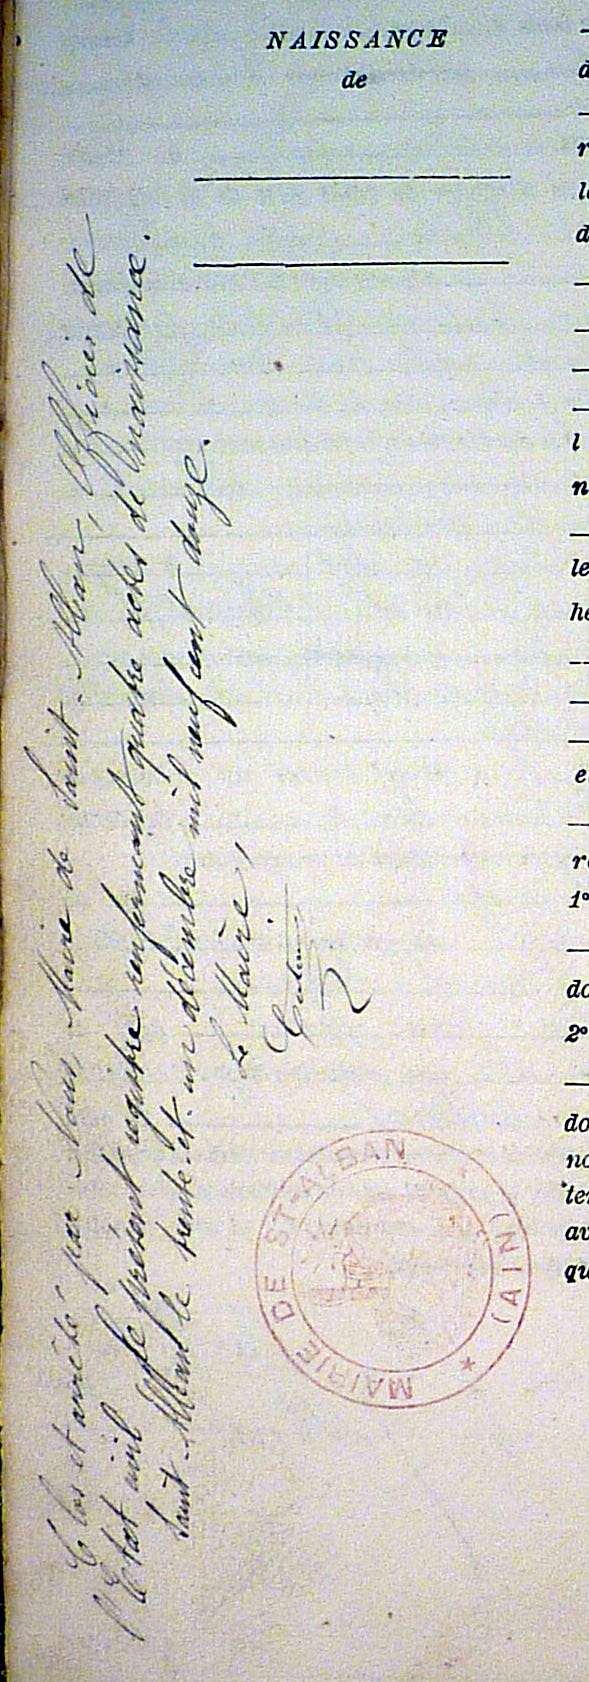 NAISSANCE
de
Clos et arrêté par Nous, Maire de Saint-Alban, Officier de
l'Etat civil le présent registre renfermant quatre actes de naissance.
Saint-Alban le trente-et-un décembre mil neuf cent douze.
Le Maire,
MAIRIE DE ST-ALBAN (AIN) *
d
r
l
d
l
n
le
he
e
1°
do
2°
do
no
ter
av
qu